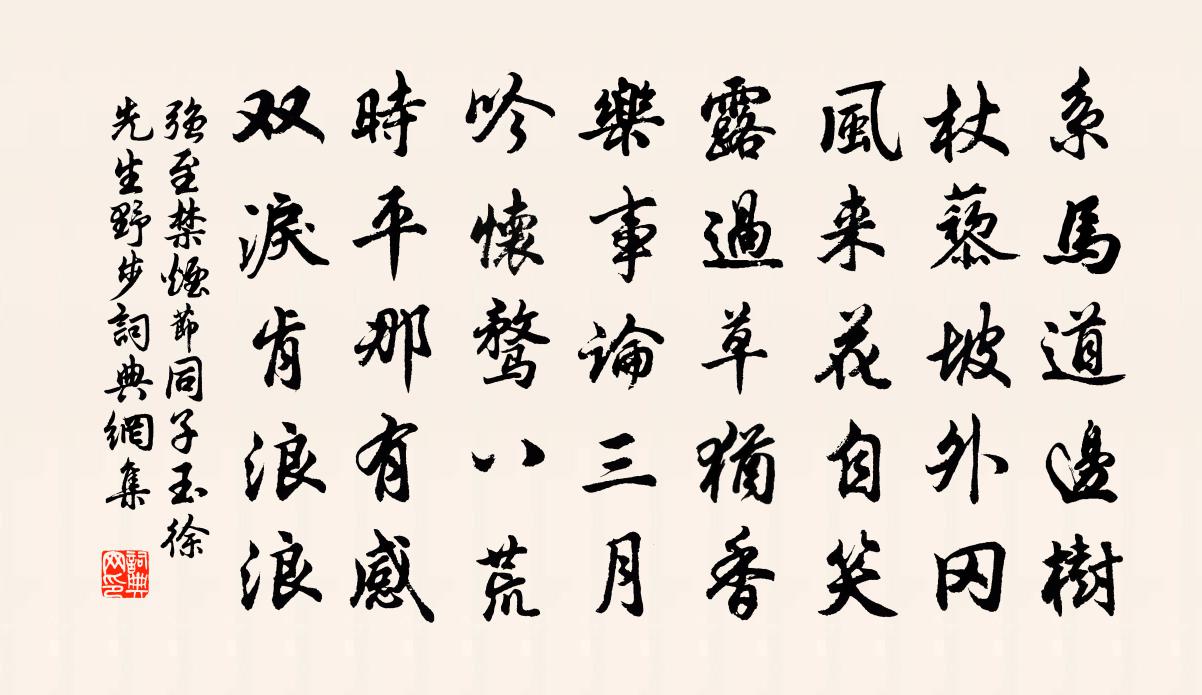 系馬道邊樹
杖藜坡外冈
風来花自笑
露過草猶香
樂事論三月
吟懷鶩八荒
時平那有感
双淚肯浪浪
強至禁煙節同子玉徐
先生野步詞典網集
詞典
网印